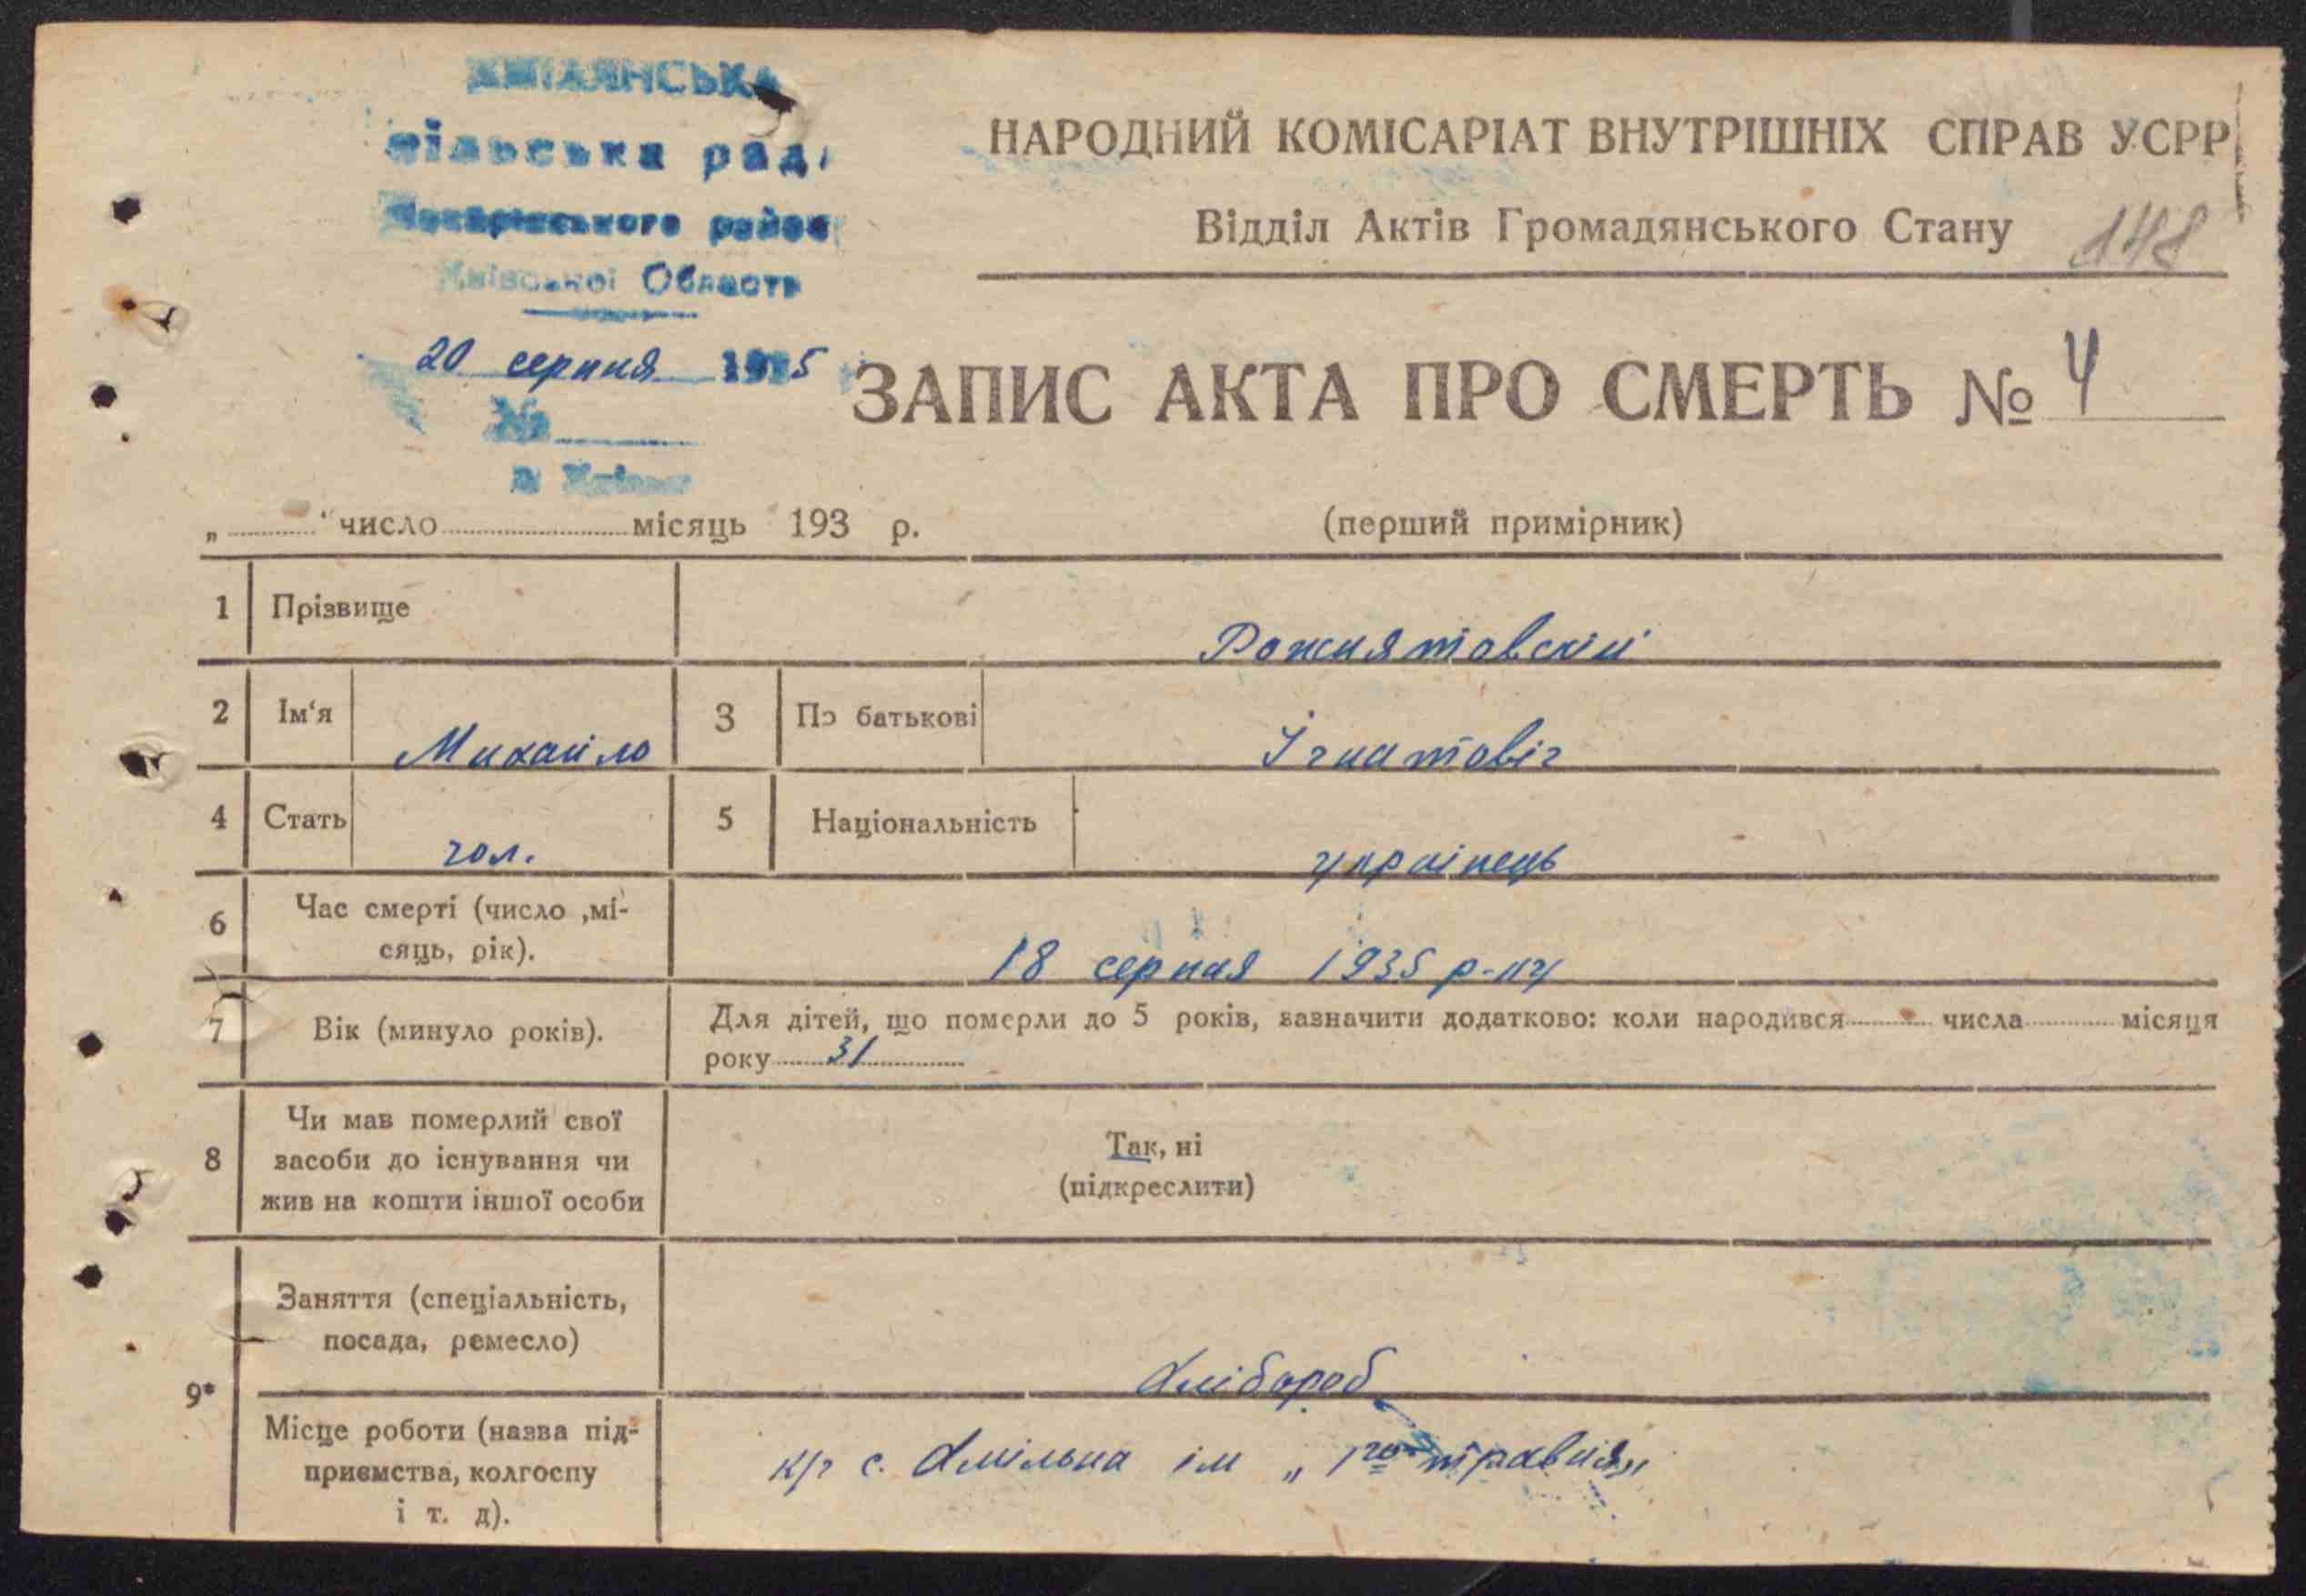 сільська рад
Макарівського район
Київської Области
20 серпня 1935
№
НАРОДНИЙ КОМІСАРІАТ ВНУТРІШНІХ СПРАВ УСРР
Відділ Актів Громадянського Стану
148
ЗАПИС АКТА ПРО СМЕРТЬ № 4
„ “ число місяць 193 р.
(перший примірник)
1 Прізвище Рожнятовскій
2 Ім‘я Михайло 3 По батькові Ігнатовіч
4 Стать чол. 5 Національність українець
6 Час смерті (число ,мі-
сяць, рік). 18 серпня 1935 р-ку
7 Вік (минуло років). Для дітей, що померли до 5 років, зазначити додатково: коли народився числа місяця
року 31
8 Чи мав померлий свої
засоби до існування чи
жив на кошти іншої особи
Так, ні
(підкреслити)
9* Заняття (спеціальність,
посада, ремесло)
хлібороб
Місце роботи (назва під-
приємства, колгоспу
і т. д).
к/г с. Хмільна ім „ 1го травня„